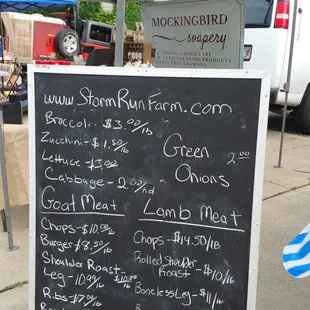 MOCKINGBIRD
soapery
www.StormRunFarm.com
Broccoli $3.00/lb
Zucchini - $1.50/lb
Lettuce - $3.00
Cabbage - 2.00/hd
Green 2.00
Onions
Goat Meat
Chops - $10.00/lb
Burgers $8.50/lb
Shoulder Roast -
Leg - 10.99
Ribs $7.00/lb
Lamb Meat
Chops - $14.50/lb
Rolled Shoulder
Roast - $10/lb
Boneless Leg - $11/lb